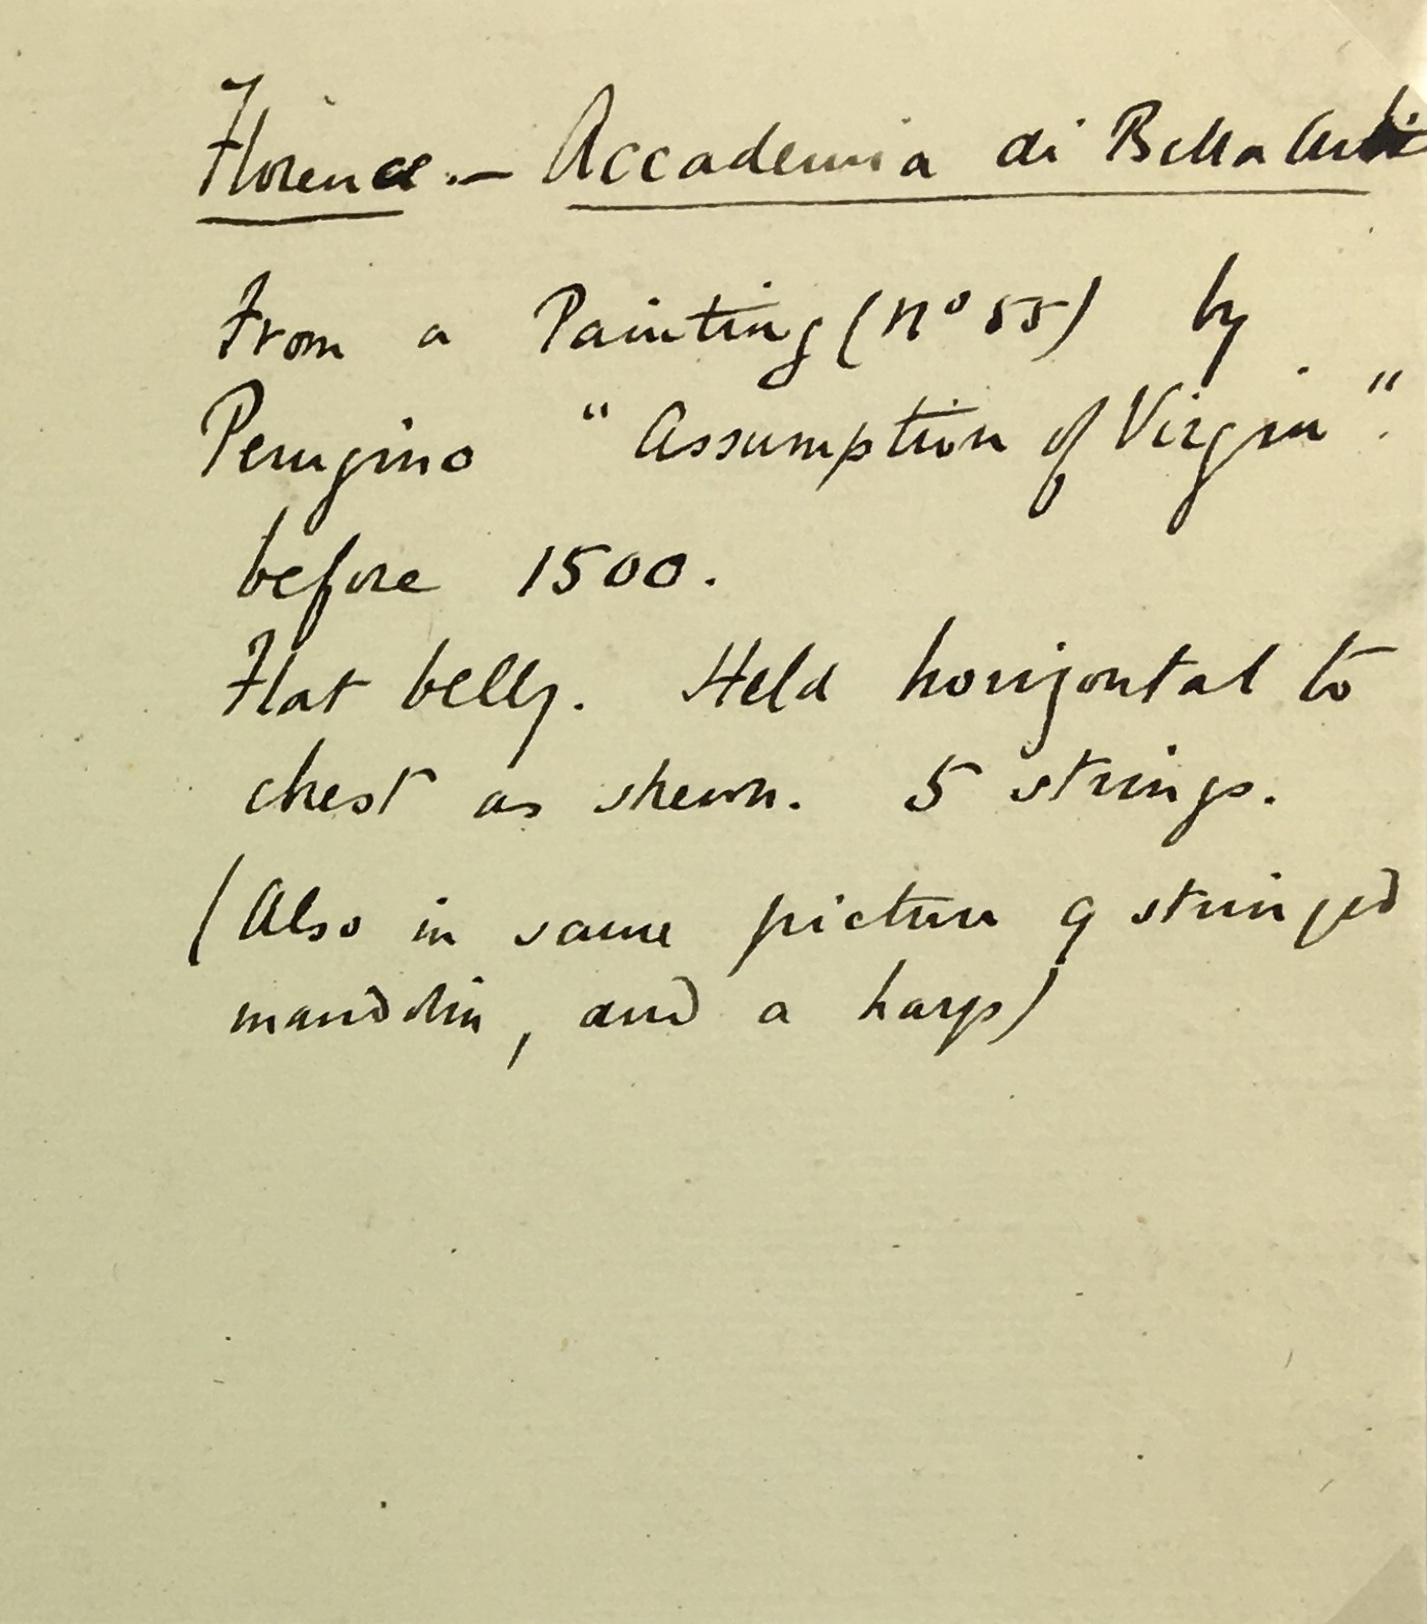 Florence.— Accademia di Bella Arti
From a Painting (No 55) by
Perugino "Assumption of Virgin".
before 1500.
Flat belly. Held horizontal to
chest as shewn. 5 strings.
(Also in same picture 9 stringed
mandolin, and a harp)